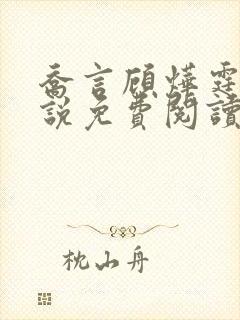 喬言顧燁霆
說免費閱讀
枕山舟